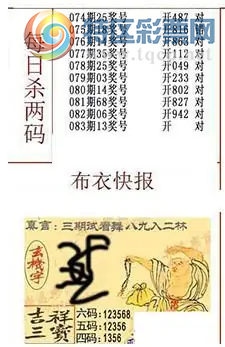 每日杀两码
074期25奖号 开487 对
075期18奖号 开816 错
076期25奖号 开863 对
077期35奖号 开112 对
078期02奖号 开049 对
079期03奖号 开233 对
080期14奖号 开802 对
081期68奖号 开827 对
082期06奖号 开942 对
083期13奖号 开 对
布衣快报
真言：三期试看舞八九入二林
玄机字
吉祥三宝
六码：123568
五码：12356
四码：1356